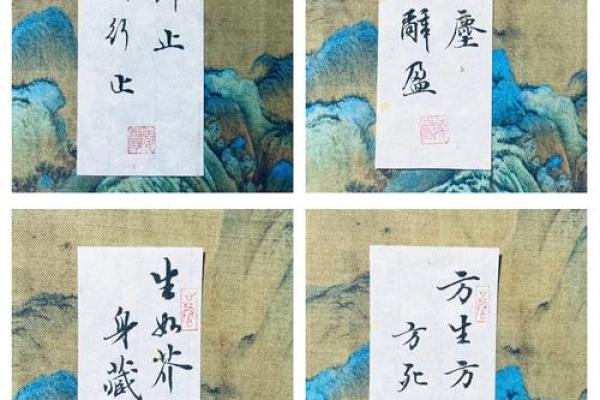 止
行止
塵
辭盈
生如芥
身藏
方生方
方死